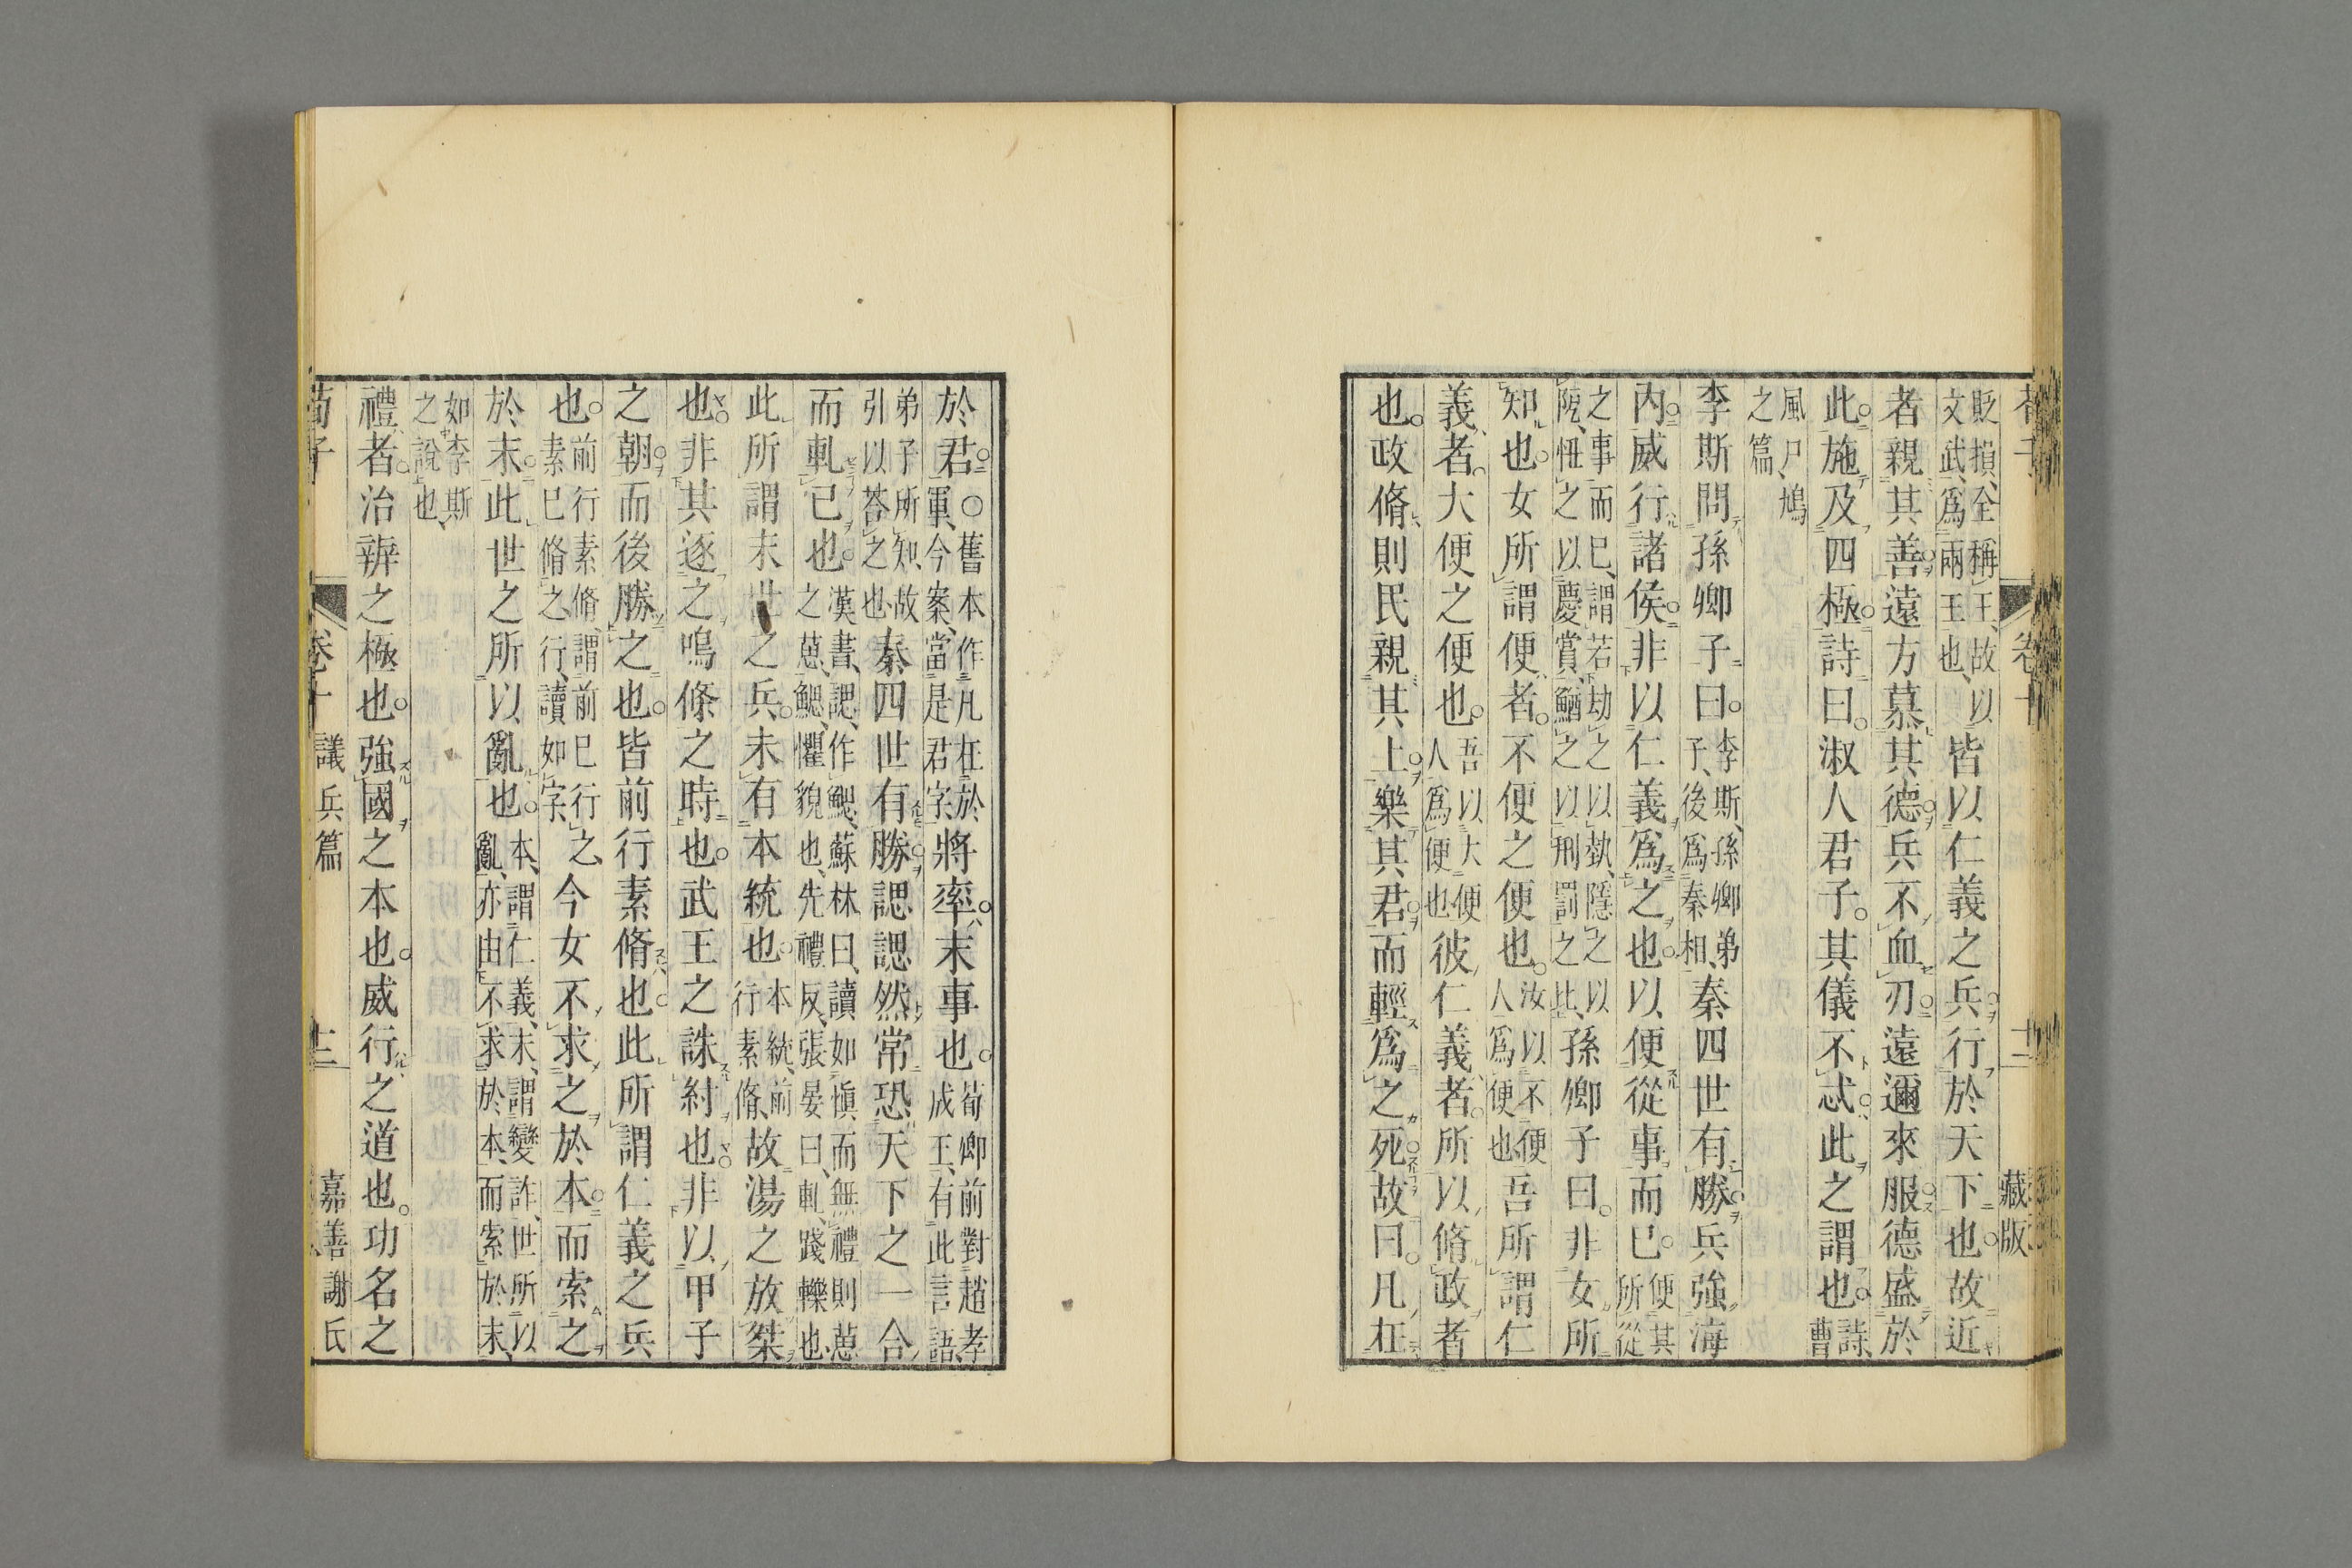 荀子 卷十 十二 藏版
貶損、全稱王、故以
文武、爲兩王也、皆以仁義之兵行於天下也。故近
者親其善。遠方慕其德。兵不血刃。遠邇來服。德盛於
此。施及四極。詩曰。淑人君子。其儀不忒。此之謂也。詩、曹
風尸鳩
之篇、
李斯問孫卿子曰。李斯、孫卿弟子、後爲秦相、秦四世有勝。兵強海
內。威行諸侯。非以仁義爲之也。以便從事而已。便其所從
之事而已、謂若劫之以埶、隱之以
阨、忸之以慶賞、鰌之以刑罰之比、孫卿子曰。非女所
知也。女所謂便者。不便之便也。汝以不便人爲便也吾所謂仁
義者。大便之便也。吾以大便人爲便也彼仁義者。所以脩政者
也。政脩則民親其上。樂其君。而輕爲之死。故曰。凡在
於君。○舊本作凡在於軍、今案、當是君字、將率。末事也。荀卿前對趙孝成王、有此言語、
弟子所知、故
引以荅之也、秦四世有勝。諰諰然常恐天下之一合
而軋已也。漢書、諰、作鰓、蘇林曰、讀如愼而無禮則葸之葸、鰓、懼貌也、先禮反、張晏曰、軋、踐轢也、
此所謂末世之兵。未有本統也。本統、前行素脩、故湯之放桀
也。非其逐之鳴條之時也。武王之誅紂也。非以甲子
之朝。而後勝之也。皆前行素脩也。此所謂仁義之兵
也。前行素脩、謂前已行之、素已脩之、行、讀如字、今女不求之於本。而索之
於末。此世之所以亂也。本、謂仁義、末、謂變詐、世所以亂、亦由不求於本、而索於末、
如李斯
之說也、
禮者。治辨之極也。強國之本也。威行之道也。功名之
荀子 卷十 議兵篇 十二 嘉善謝氏